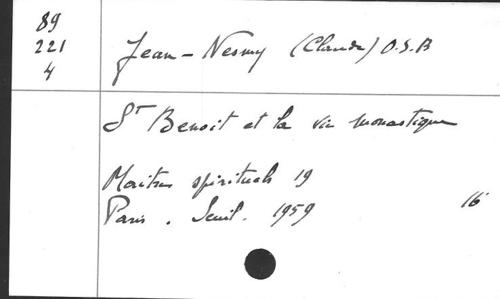 89
221
4
Jean-Nesmy (Claude) O.S.B
St Benoit et la vie monastique
Maitres spirituels 19
Paris. Seuil. 1959
16